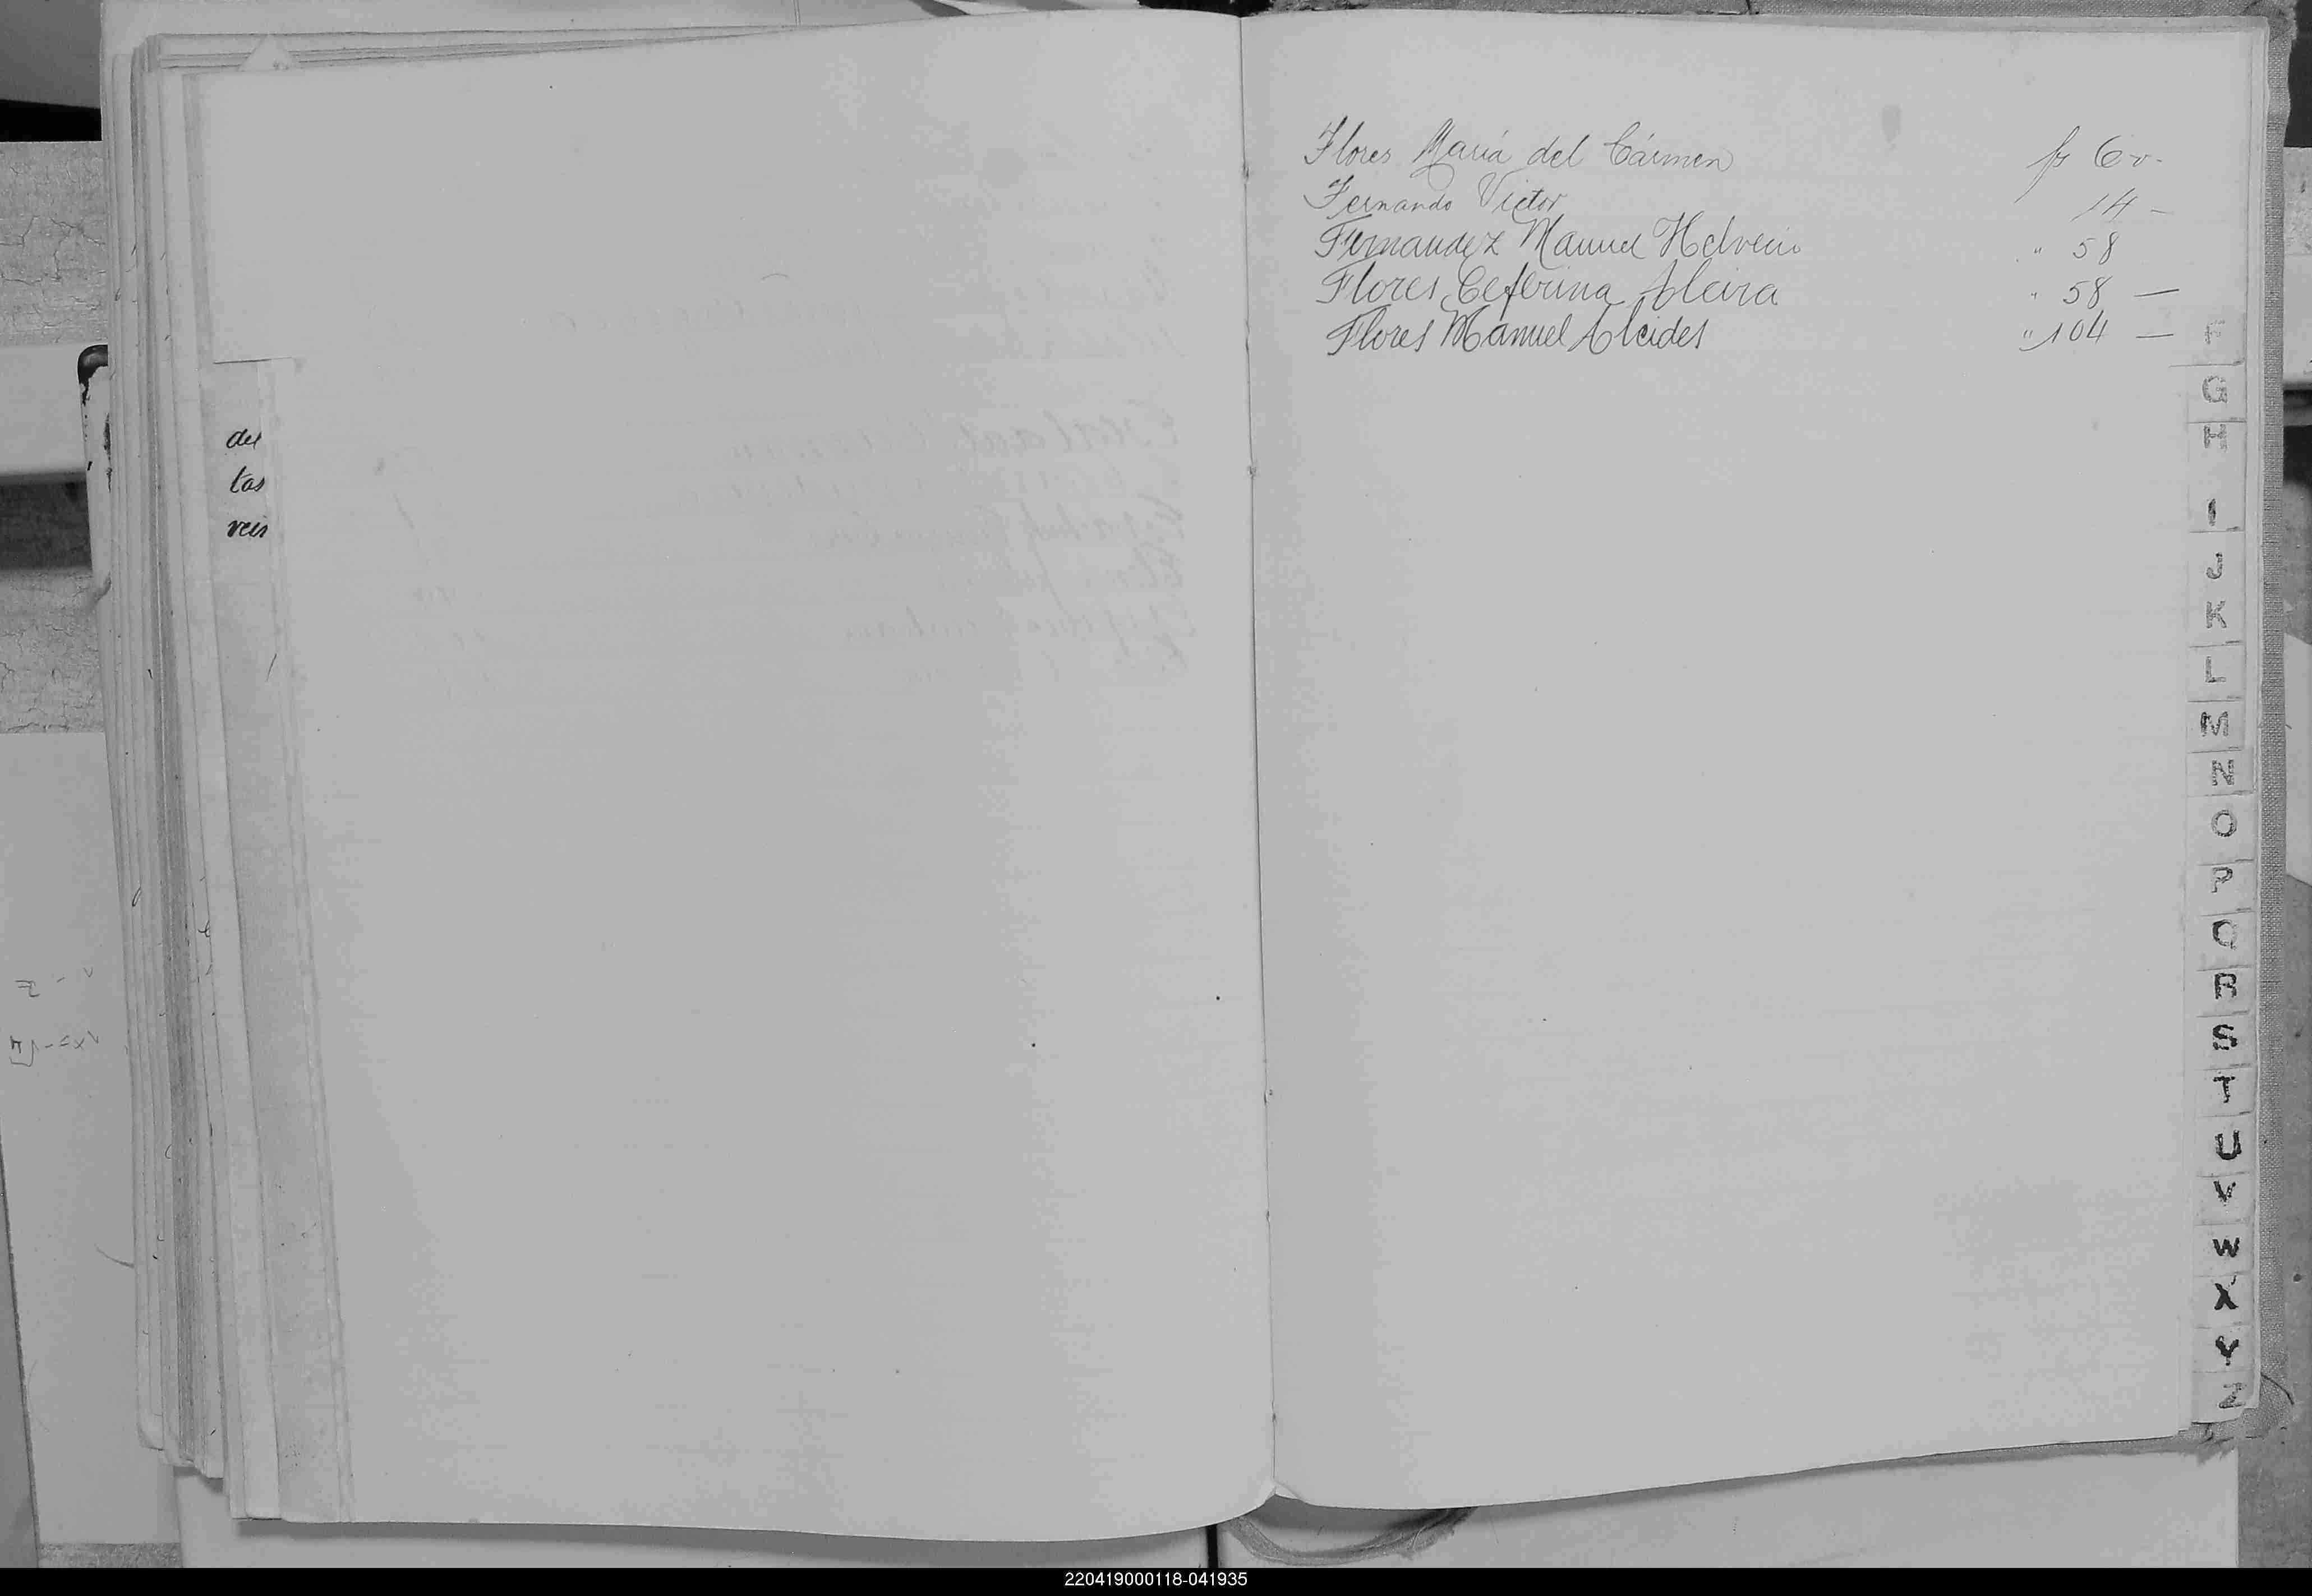 del
tas
veis
Flores María del Cármen fs 6 v.
Fernando Victor 14 -
Fernandez Manuel Helvecio " 58
Flores Ceferina Alcira " 58 —
Flores Manuel Alcides " 104 —
F
G
H
I
J
K
L
M
N
O
P
Q
R
S
T
U
V
W
X
Y
Z
220419000118-041935